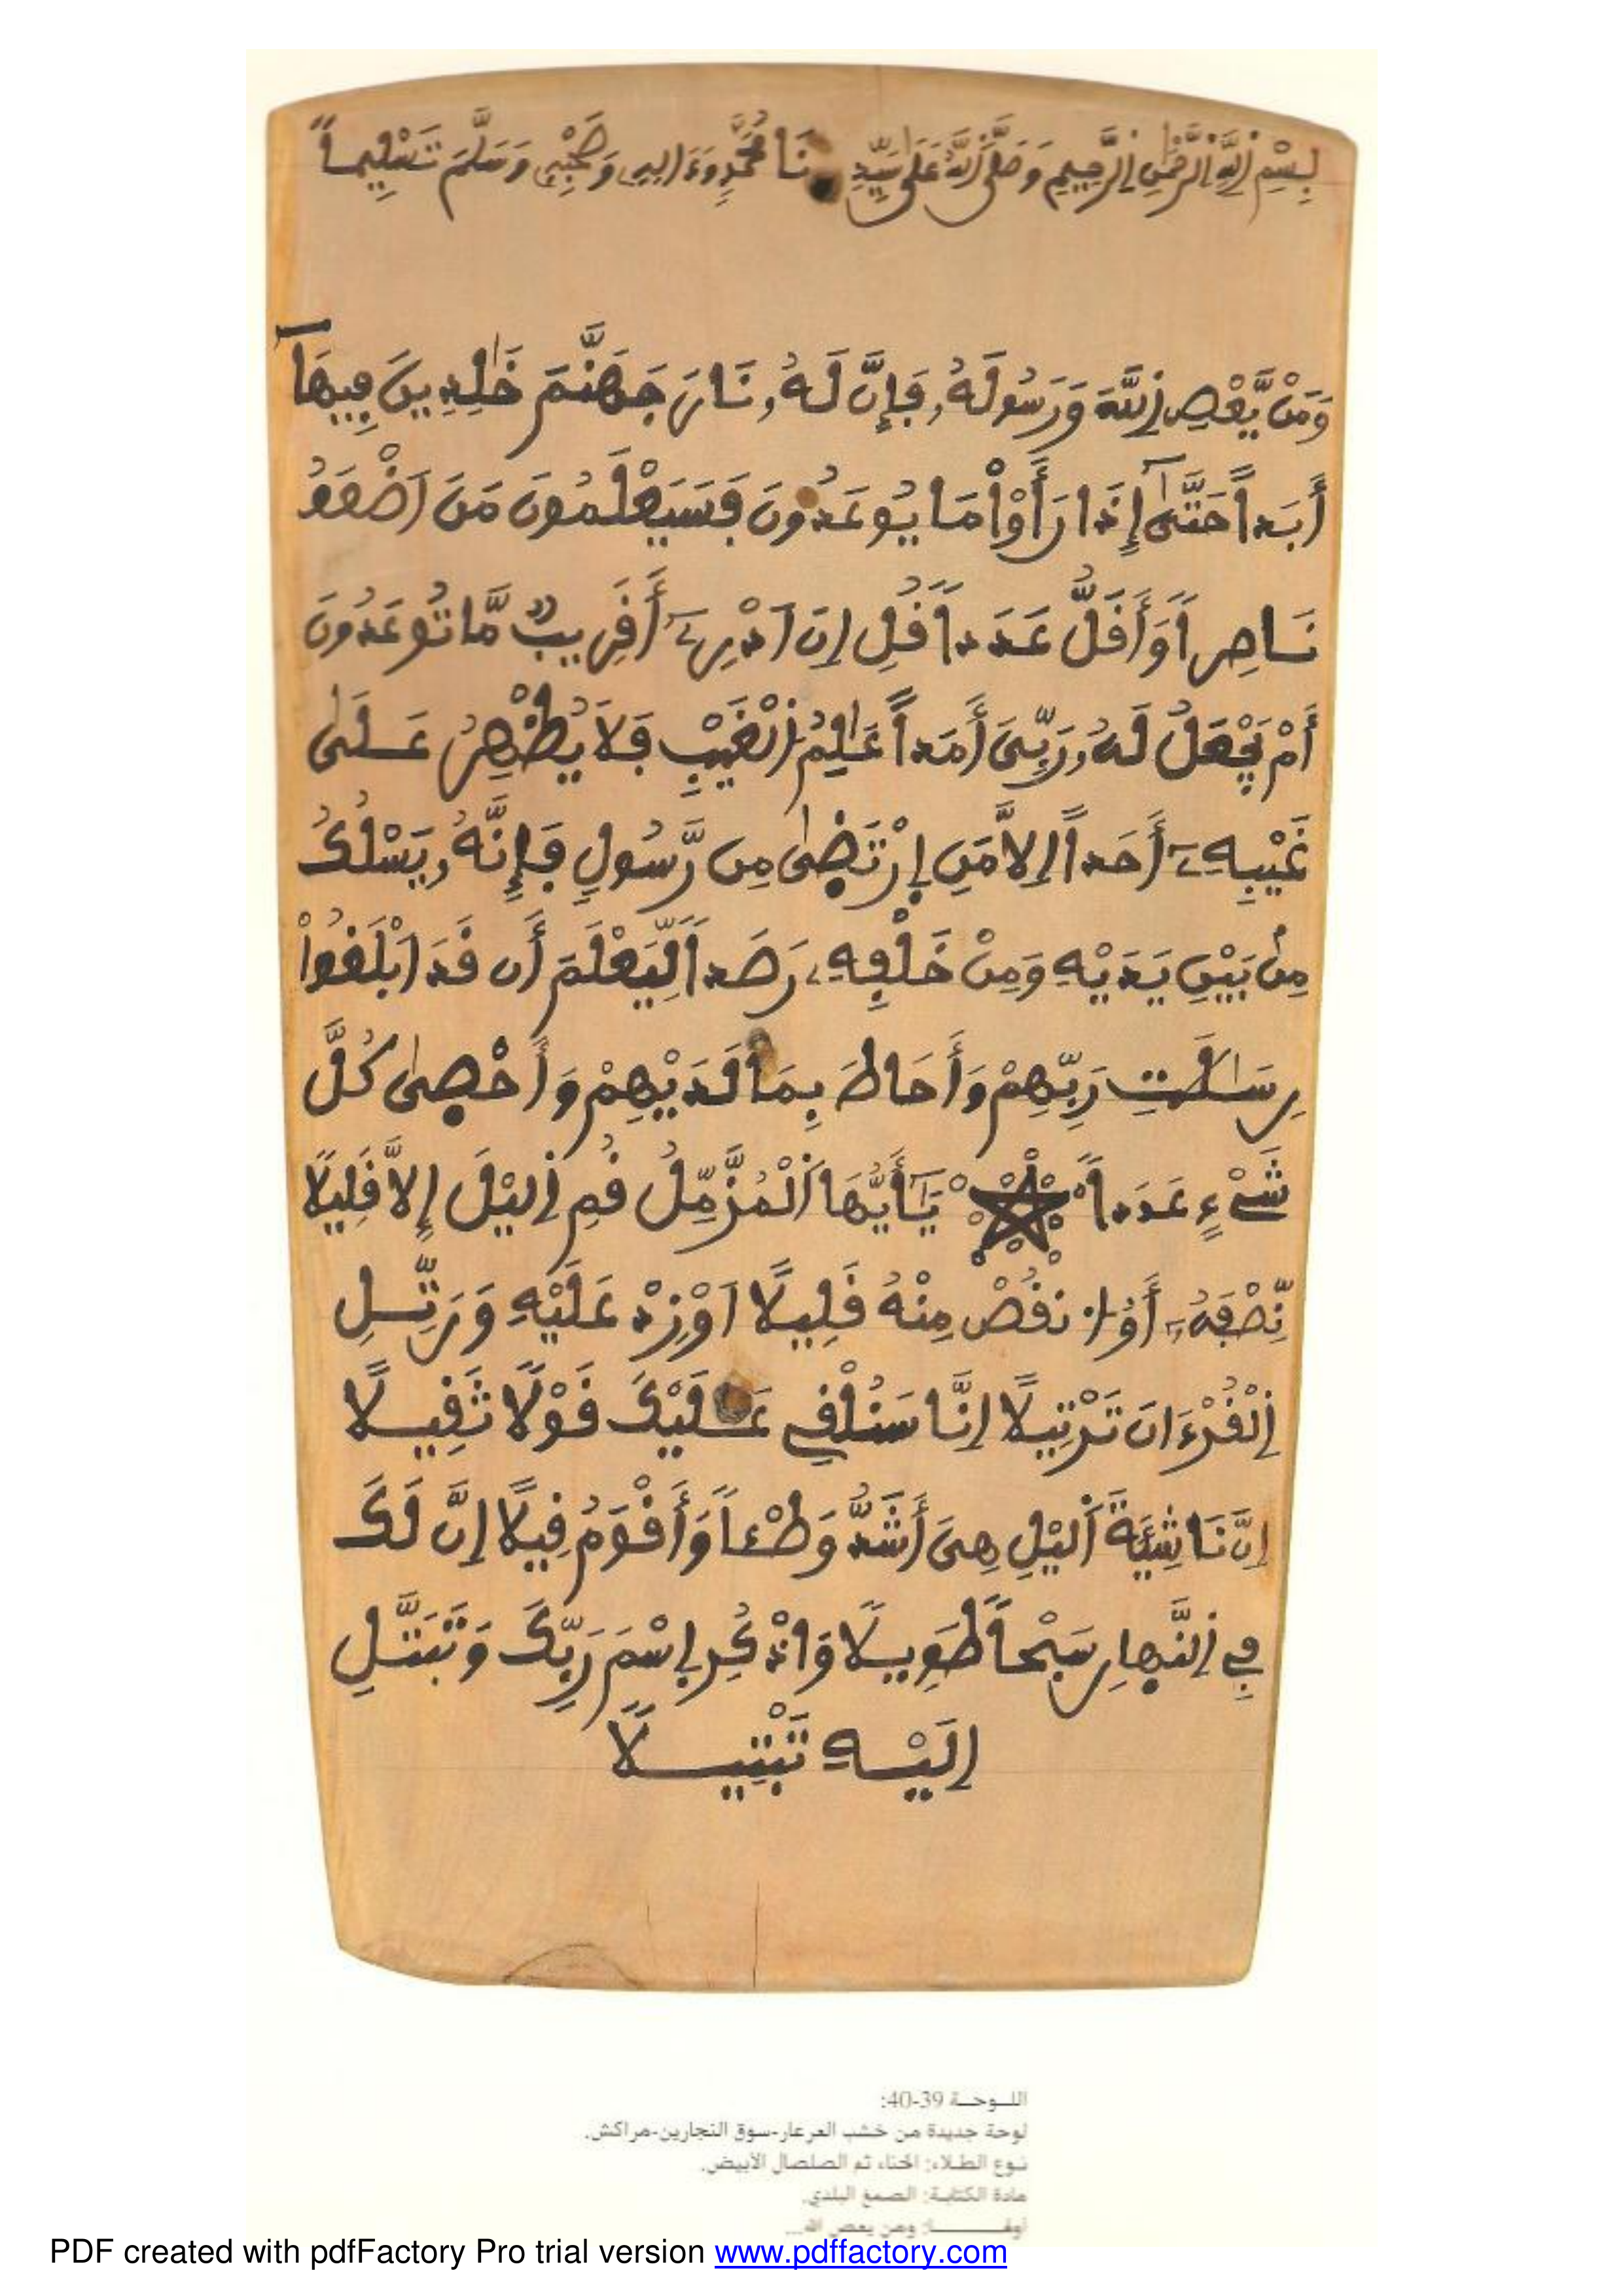 بِسْمِ اِللَّهِ اِلرَّحْمَٰنِ اِلرَّحِيمِ وَصَلَّى اَللَّهُ عَلَىٰ سَيِّدِنَا مُحَمَّدٍ وَءَالِهِ وَصَحْبِهِ وَسَلَّمَ تَسْلِيماً
وَمَنْ يَّعْصِ اِللَّهَ وَرَسُولَهُۥ فَإِنَّ لَهُۥ نَارَ جَهَنَّمَ خَٰلِدِينَ فِيهَآ
أَبَداً حَتَّىٰٓ إِذَا رَأَوْاْ مَا يُوعَدُونَ فَسَيَعْلَمُونَ مَنَ اَضْعَفُ
نَاصِراً وَأَقَلُّ عَدَداً قُلِ اِنَ اَدْرِےٓ أَقَرِيبٌ مَّا تُوعَدُونَ
أَمْ يَجْعَلُ لَهُۥ رَبِّىَ أَمَداً عَٰلِمُ اُلْغَيْبِ فَلَا يُظْهِرُ عَلَىٰ
غَيْبِهِۦٓ أَحَداً اِلَّا مَنِ اِرْتَضَىٰ مِن رَّسُولٍ فَإِنَّهُۥ يَسْلُكُ
مِنۢ بَيْنِ يَدَيْهِ وَمِنْ خَلْفِهِۦ رَصَداً لِّيَعْلَمَ أَن قَدَ اَبْلَغُواْ
رِسَٰلَٰتِ رَبِّهِمْ وَأَحَاطَ بِمَا لَدَيْهِمْ وَأَحْصَىٰ كُلَّ
شَےْءٍ عَدَداً يَٰٓأَيُّهَا اَلْمُزَّمِّلُ قُمِ اِليْلَ إِلَّا قَلِيلًا
نِّصْفَهُۥٓ أَوُ اُنقُصْ مِنْهُ قَلِيلًا اَوْ زِدْ عَلَيْهِ وَرَتِّلِ
اِلْقُرْءَانَ تَرْتِيلًا اِنَّا سَنُلْقِے عَلَيْكَ قَوْلًا ثَقِيلًا
اِنَّ نَاشِئَةَ اَليْلِ هِىَ أَشَدُّ وَطْـٔاً وَأَقْوَمُ قِيلًا اِنَّ لَكَ
فِے اِلنَّهارِ سَبْحاً طَوِيلًا وَاذْكُرِ اِسْمَ رَبِّكَ وَتَبَتَّلِ
اِلَيْهِ تَبْتِيلًا
اللـوحـة 39-40:
لوحة جديدة من خشب العرعار-سوق النجارين-مراكش.
نـوع الطـلاء: الحناء ثم الصلصال الأبيض.
مادة الكتابة: الصمغ البلدي.
أولهـــــا: ومن يعص الله...
PDF created with pdfFactory Pro trial version www.pdffactory.com